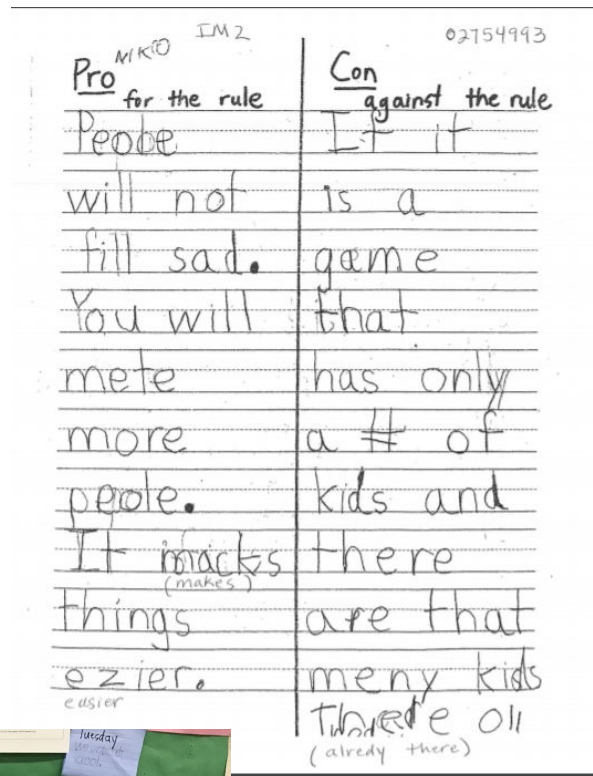 NIKO
IM2
02754993
Pro
for the rule
Peobe
will not
fill sad.
You will
mete
more
peole.
It macks
(makes)
things
ezier.
easier
Con
against the rule
If it
is a
game
that
has only
a # of
kids and
there
are that
meny kids
(alredy there)
Tuesday